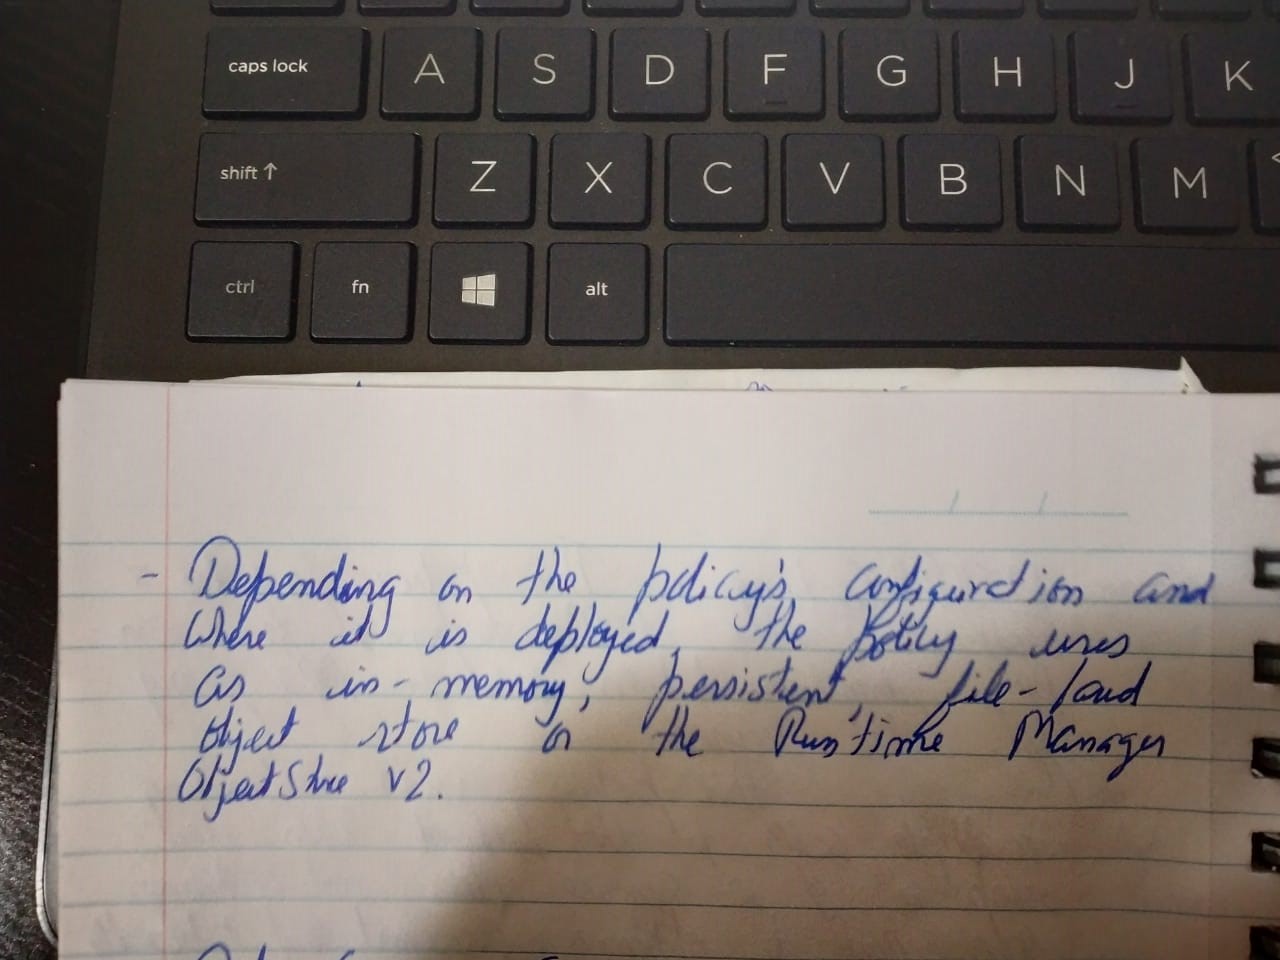 caps lock A S D F G H J K
shift ↑ Z X C V B N M <
ctrl fn alt
- Depending on the policy's configuration and
where it is deployed, the policy uses
as in-memory, persistent, file-
object store or the Runtime Manager
Object Store v2.